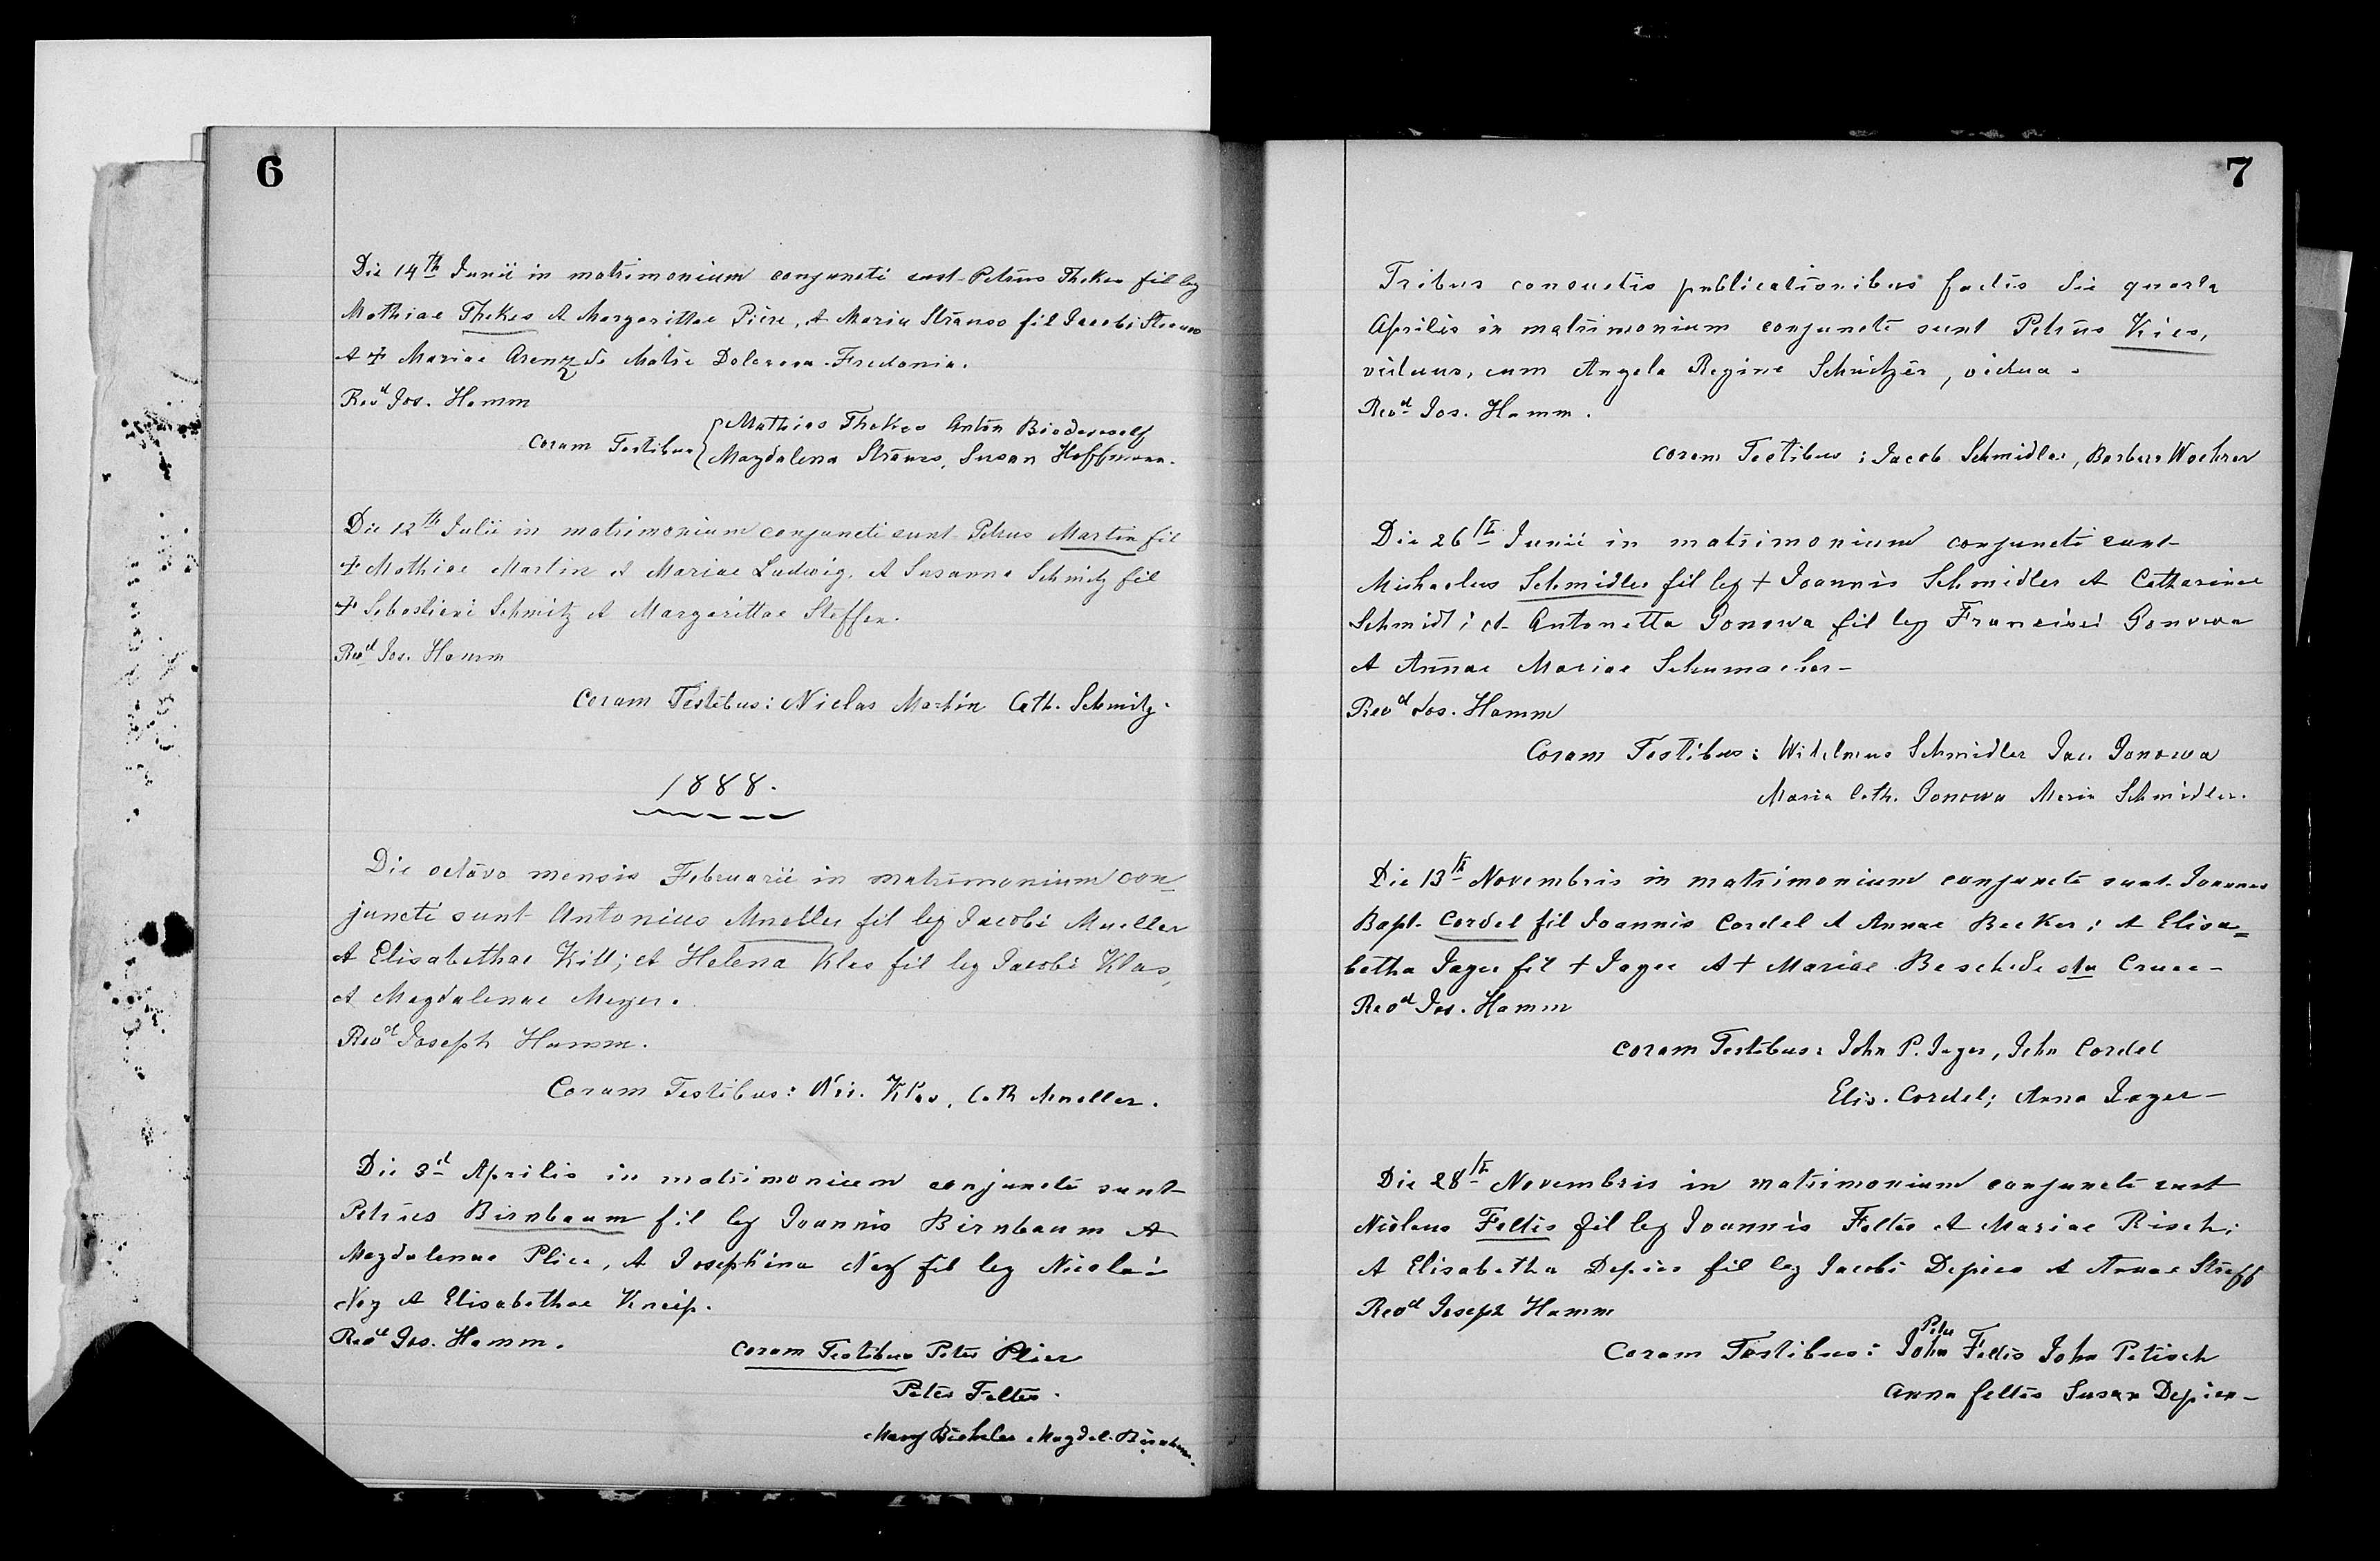 6
Die 14th Junii in matrimonium conjuncti sunt Petrus Thekes fil leg
Mathiae Thekes et Margarittae Piere, et Maria Strauss fil Jacobi Strauss
et + Mariae Arenz de Matre Dolorosa Fredonia.
Revd Jos. Hamm
Coram Testibus { Mathias Thekes Anton Biederwolf
Magdalena Strauss, Susan Hoffmann.
Die 12th Julii in matrimonium conjuncti sunt Petrus Martin fil
+ Mathiae Martin et Mariae Ludwig, et Susanna Schmitz fil
+ Sebastiani Schmitz et Margarittae Steffen.
Revd Jos. Hamm
Coram Testibus: Niclas Martin Cath. Schmitz.
1888.
Die octavo mensis Februarii in matrimonium con-
juncti sunt Antonius Mueller fil leg Jacobi Mueller
et Elisabethae Kill; et Helena Klas fil leg Jacobi Klas,
et Magdalenae Meyer.
Revd Joseph Hamm.
Coram Testibus: Nic. Klas, Cath Mueller.
Die 3d Aprilis in matrimonium conjuncti sunt
Petrus Birnbaum fil leg Joannis Birnbaum et
Magdalenae Plier, et Josephina Ney fil leg Nicolai
Ney et Elisabethae Kneip.
Revd Jos. Hamm.
Coram Testibus Peter Plier
Peter Feltes.
Mary Bichler Magdal. Birnbaum.
7
Tribus consuetis publicationibus factis die quarta
Aprilis in matrimonium conjuncti sunt Petrus Kies,
viduus, cum Angela Regine Schnitzer, vidua.
Revd Jos. Hamm.
Coram Testibus: Jacob Schmidler, Barbara Woehrer
Die 26th Junii in matrimonium conjuncti sunt
Michaelus Schmidler fil leg + Joannis Schmidler et Catharinae
Schmidt; et Antonetta Gonowa fil leg Francisci Gonowa
et Annae Mariae Schumacher-
Revd Jos. Hamm
Coram Testibus: Wilelmus Schmidler Jac. Gonowa
Maria Cath. Gonowa Maria Schmidler.
Die 13th Novembris in matrimonium conjuncti sunt Joannes
Bapt. Cordel fil Joannis Cordel et Annae Becker; et Elisa=
betha Jager fil + Jager et + Mariae Besch de sta Cruce-
Revd Jos. Hamm
Coram Testibus: John P. Jager, John Cordel
Elis. Cordel; Anna Jager-
Die 28th Novembris in matrimonium conjuncti sunt
Niclaus Feltes fil leg Joannis Feltes et Mariae Risch;
et Elisabetha Depies fil leg Jacobi Depies et Annae Streff
Revd Joseph Hamm
Peter
Coram Testibus: John Feltes John Petisch
Anna Feltes Susan Depies-